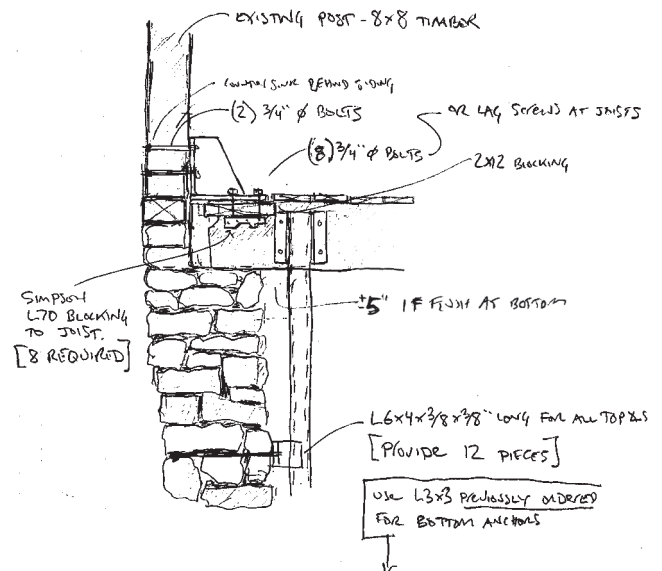 EXISTING POST - 8x8 TIMBER
COUNTERSINK BEHIND SIDING
(2) 3/4" Ø BOLTS
OR LAG SCREWS AT JOISTS
(8) 3/4" Ø BOLTS
2x12 BLOCKING
SIMPSON
L70 BLOCKING
TO JOIST.
[8 REQUIRED]
±5" IF FLUSH AT BOTTOM
L6x4x3/8x3/8" LONG FOR ALL TOP
[PROVIDE 12 PIECES]
USE L3x3 PREVIOUSLY ORDERED
FOR BOTTOM ANCHORS